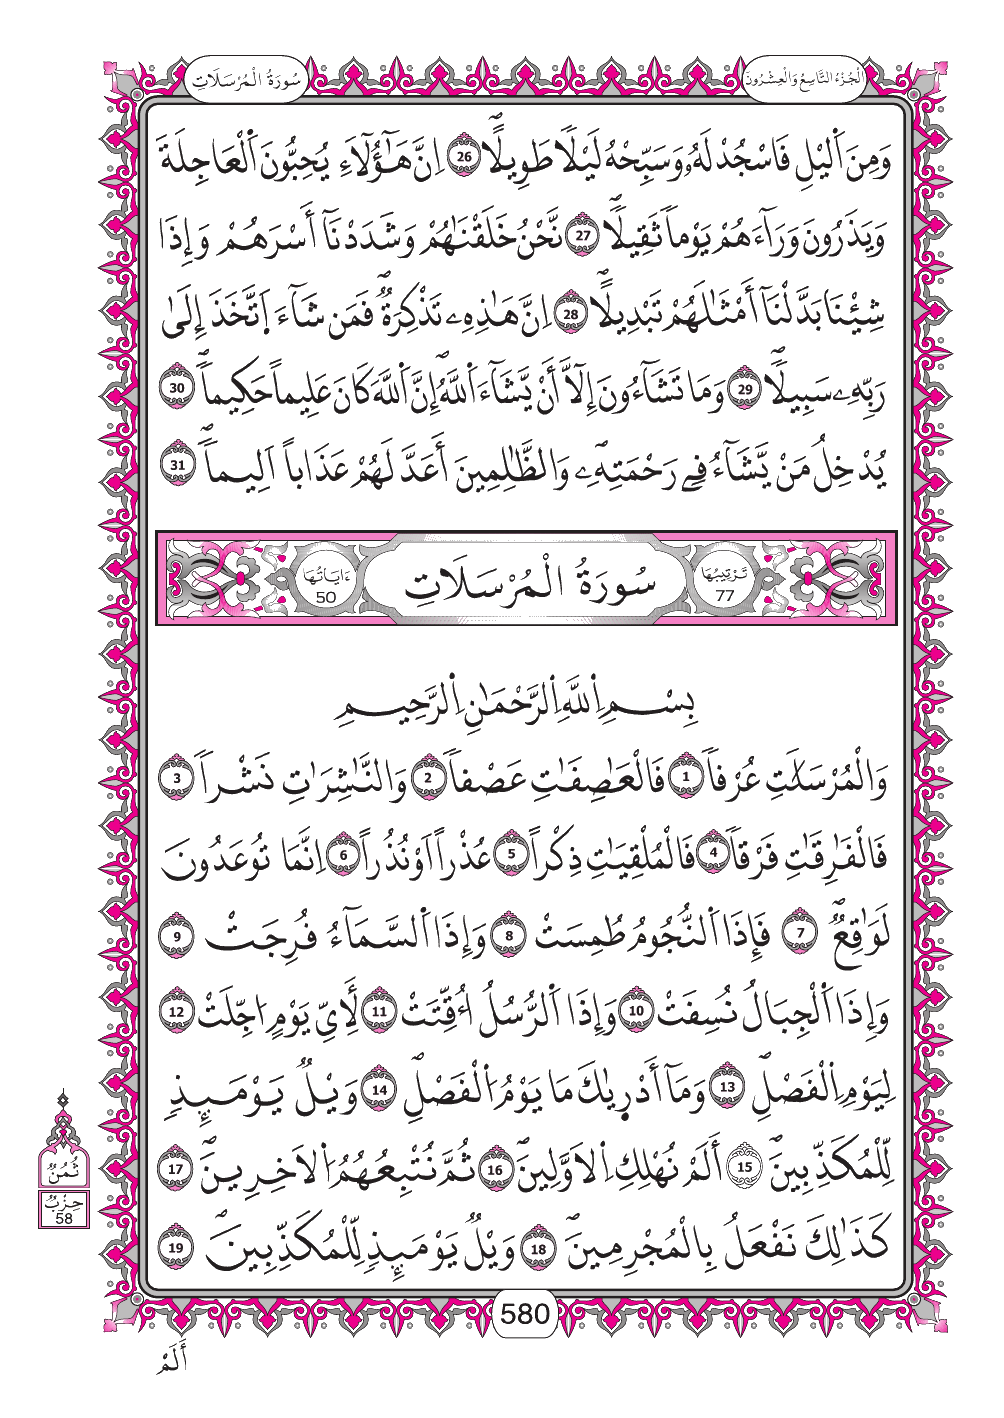 الْجُزْءُ التَّاسِعُ وَالْعِشْرُونَ
سُورَةُ الْمُرْسَلَاتِ
وَمِنَ اَ۬ليْلِ فَاسْجُدْ لَهُۥ وَسَبِّحْهُ لَيْلاٗ طَوِيلاًۖ 26 اِنَّ هَٰٓؤُلَآءِ يُحِبُّونَ اَ۬لْعَاجِلَةَ
وَيَذَرُونَ وَرَآءَهُمْ يَوْماٗ ثَقِيلاٗۖ 27 نَّحْنُ خَلَقْنَٰهُمْ وَشَدَدْنَآ أَسْرَهُمْ وَإِذَا
شِئْنَا بَدَّلْنَآ أَمْثَٰلَهُمْ تَبْدِيلاًۖ 28 اِنَّ هَٰذِهِۦ تَذْكِرَةٞۖ فَمَن شَآءَ اَ۪تَّخَذَ إِلَىٰ
رَبِّهِۦ سَبِيلاٗۖ 29 وَمَا تَشَآءُونَ إِلَّآ أَنْ يَّشَآءَ اَ۬للَّهُۖ إِنَّ اَ۬للَّهَ كَانَ عَلِيماً حَكِيماٗۖ 30
يُدْخِلُ مَنْ يَّشَآءُ فِے رَحْمَتِهِۦۖ وَالظَّٰلِمِينَ أَعَدَّ لَهُمْ عَذَاباً اَلِيماٗۖ 31
تَرْتِيبُهَا 77
سُورَةُ الْمُرْسَلَاتِ
ءَايَاتُهَا 50
بِسْمِ اِ۬للَّهِ اِ۬لرَّحْمَٰنِ اِ۬لرَّحِيمِ
وَالْمُرْسَلَٰتِ عُرْفاٗ 1 فَالْعَٰصِفَٰتِ عَصْفاٗ 2 وَالنَّٰشِرَٰتِ نَشْراٗ 3
فَالْفَٰرِقَٰتِ فَرْقاٗ 4 فَالْمُلْقِيَٰتِ ذِكْراً 5 عُذْراً اَوْ نُذُراً 6 اِنَّمَا تُوعَدُونَ
لَوَٰقِعٞۖ 7 فَإِذَا اَ۬لنُّجُومُ طُمِسَتْ 8 وَإِذَا اَ۬لسَّمَآءُ فُرِجَتْ 9
وَإِذَا اَ۬لْجِبَالُ نُسِفَتْ 10 وَإِذَا اَ۬لرُّسُلُ أُقِّتَتْ 11 لِأَيِّ يَوْمٍ اُجِّلَتْ 12
لِيَوْمِ اِ۬لْفَصْلِۖ 13 وَمَآ أَدْر۪يٰكَ مَا يَوْمُ اُ۬لْفَصْلِۖ 14 وَيْلٞ يَوْمَئِذٖ
لِّلْمُكَذِّبِينَۖ 15 أَلَمْ نُهْلِكِ اِ۬لَاوَّلِينَ 16 ثُمَّ نُتْبِعُهُمُ اُ۬لَاخِرِينَۖ 17
كَذَٰلِكَ نَفْعَلُ بِالْمُجْرِمِينَۖ 18 وَيْلٞ يَوْمَئِذٖ لِّلْمُكَذِّبِينَۖ 19
ثُمُنٌ
حِزْبٌ
58
580
أَلَمْ